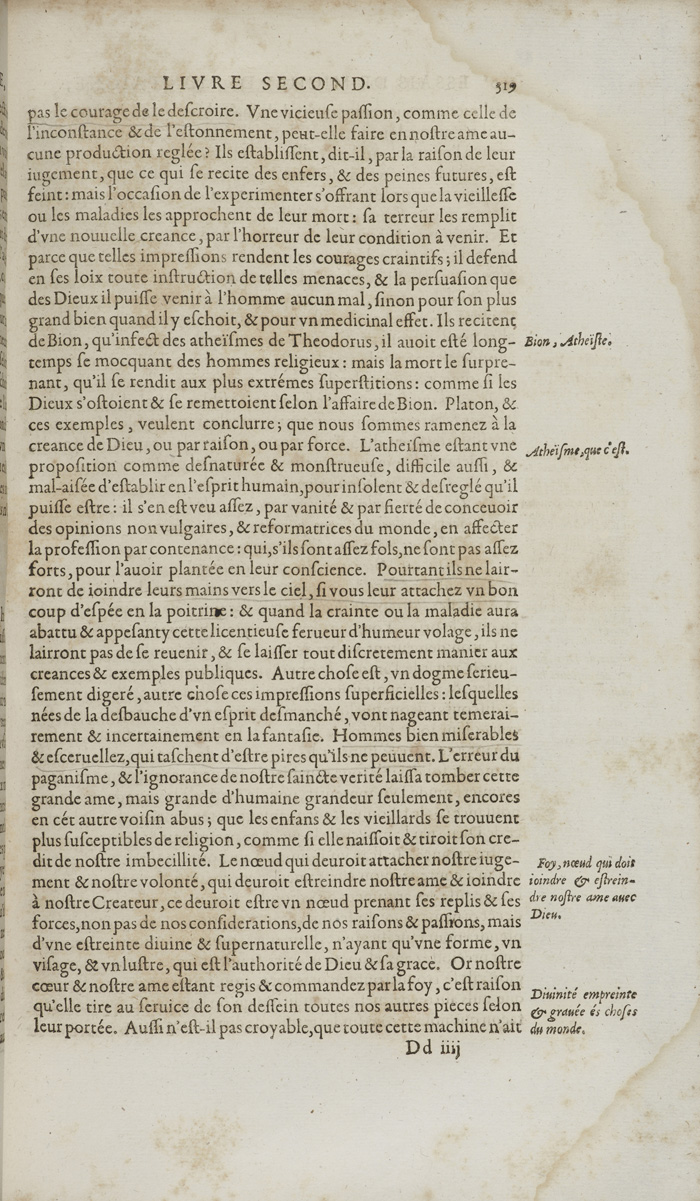 LIVRE SECOND. 319
pas le courage de le descroire. Vne vicieuſe paſſion, comme celle de
l'inconſtance & de l'eſtonnement, peut-elle faire en noſtre ame au-
cune production reglée? Ils eſtabliſſent, dit-il, par la raiſon de leur
iugement, que ce qui ſe recite des enfers, & des peines futures, eſt
feint: mais l'occaſion de l'experimenter s'offrant lors que la vieilleſſe
ou les maladies les approchent de leur mort: ſa terreur les remplit
d'vne nouuelle creance, par l'horreur de leur condition à venir. Et
parce que telles impreſſions rendent les courages craintifs; il defend
en ſes loix toute inſtruction de telles menaces, & la perſuaſion que
des Dieux il puiſſe venir à l'homme aucun mal, ſinon pour ſon plus
grand bien quand il y eſchoit, & pour vn medicinal effet. Ils recitent
de Bion, qu'infect des atheïſmes de Theodorus, il auoit eſté long-
temps ſe mocquant des hommes religieux: mais la mort le ſurpre-
nant, qu'il ſe rendit aux plus extrémes ſuperſtitions: comme ſi les
Dieux s'oſtoient & ſe remettoient ſelon l'affaire de Bion. Platon, &
ces exemples, veulent conclurre; que nous ſommes ramenez à la
creance de Dieu, ou par raiſon, ou par force. L'atheïſme eſtant vne
propoſition comme deſnaturée & monſtrueuſe, difficile auſſi, &
mal-aiſée d'eſtablir en l'eſprit humain, pour inſolent & deſreglé qu'il
puiſſe eſtre: il s'en eſt veu aſſez, par vanité & par fierté de conceuoir
des opinions non vulgaires, & reformatrices du monde, en affecter
la profeſſion par contenance: qui, s'ils ſont aſſez fols, ne ſont pas aſſez
forts, pour l'auoir plantée en leur conſcience. Pourtant ils ne lair-
ront de ioindre leurs mains vers le ciel, ſi vous leur attachez vn bon
coup d'eſpée en la poitrine: & quand la crainte ou la maladie aura
abattu & appeſanty cette licentieuſe ferueur d'humeur volage, ils ne
lairront pas de ſe reuenir, & ſe laiſſer tout diſcretement manier aux
creances & exemples publiques. Autre choſe eſt, vn dogme ſerieu-
ſement digeré, autre choſe ces impreſſions ſuperficielles: leſquelles
nées de la deſbauche d'vn eſprit deſmanché, vont nageant temerai-
rement & incertainement en la fantaſie. Hommes bien miſerables
& eſceruellez, qui taſchent d'eſtre pires qu'ils ne peuuent. L'erreur du
paganiſme, & l'ignorance de noſtre ſaincte verité laiſſa tomber cette
grande ame, mais grande d'humaine grandeur ſeulement, encores
en cét autre voiſin abus; que les enfans & les vieillards ſe trouuent
plus ſuſceptibles de religion, comme ſi elle naiſſoit & tiroit ſon cre-
dit de noſtre imbecillité. Le nœud qui deuroit attacher noſtre iuge-
ment & noſtre volonté, qui deuroit eſtreindre noſtre ame & ioindre
à noſtre Createur, ce deuroit eſtre vn nœud prenant ſes replis & ſes
forces, non pas de nos conſiderations, de nos raiſons & paſſions, mais
d'vne eſtreinte diuine & ſupernaturelle, n'ayant qu'vne forme, vn
viſage, & vn luſtre, qui eſt l'authorité de Dieu & ſa grace. Or noſtre
cœur & noſtre ame eſtant regis & commandez par la foy, c'eſt raiſon
qu'elle tire au ſeruice de ſon deſſein toutes nos autres pieces ſelon
leur portée. Auſſi n'eſt-il pas croyable, que toute cette machine n'ait
Dd iiij
Bion, Atheïſte.
Atheïſme, que c'eſt.
Foy, nœud qui doit
ioindre & eſtrein-
dre noſtre ame auec
Dieu.
Diuinité empreinte
& grauée és choſes
du monde.